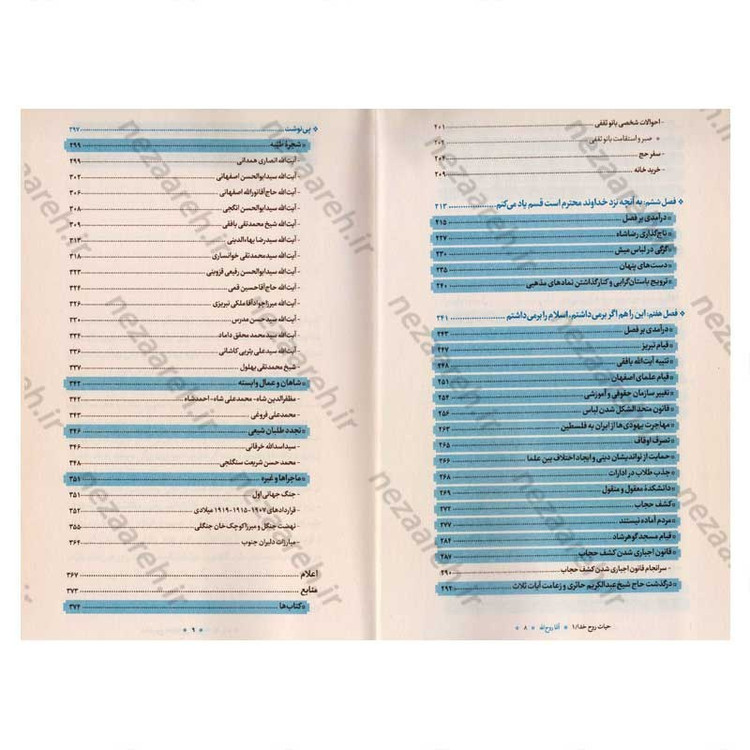 - احوالات شخصی بانو ثقفی ۲۰۱
* صبر و استقامت بانو ثقفی ۲۰۹
- سفر حج ۲۰۴
- خرید خانه ۲۰۹
* فصل ششم: به آنچه نزد خداوند محترم است قسم یاد می‌کنم ۲۱۳
* درآمدی بر فصل ۲۱۵
* تاج‌گذاری رضاشاه ۲۲۷
* گرگی در لباس میش ۲۳۰
* دست‌های پنهان ۲۳۵
* ترویج باستان‌گرایی و کنار گذاشتن نمادهای مذهبی ۲۴۰
* فصل هفتم: این را هم اگر برمی‌داشتم، اسلام را برمی‌داشتم ۲۴۱
* درآمدی بر فصل ۲۴۳
* قیام تبریز ۲۴۷
* تنبیه آیت‌الله بافقی ۲۴۸
* قیام علمای اصفهان ۲۵۱
* تغییر سازمان حقوقی و آموزشی ۲۵۲
* قانون متحدالشکل شدن لباس ۲۵۶
* مهاجرت یهودی‌ها از ایران به فلسطین ۲۶۳
* تصرف اوقاف ۲۶۵
* حمایت از نواندیشان دینی و ایجاد اختلاف بین علما ۲۶۶
* جذب طلاب در ادارات ۲۶۸
* دانشکده معقول و منقول ۲۶۹
* کشف حجاب ۲۷۲
* مردم آماده نیستند ۲۷۷
* قیام مسجد گوهرشاد ۲۸۴
* قانون اجباری شدن کشف حجاب ۲۸۷
- سرانجام قانون اجباری شدن کشف حجاب ۲۹۰
* درگذشت حاج شیخ عبدالکریم حائری و زعامت آیات ثلاث ۲۹۲
حیات روح خدا/۱ * آقا روح‌الله * ۸ *
* پی‌نوشت ۲۹۷
* شجرهٔ طیّبه ۲۹۹
- آیت‌الله انصاری همدانی ۲۹۹
- آیت‌الله سیدابوالحسن اصفهانی ۳۰۲
- آیت‌الله حاج‌آقانورالله اصفهانی ۳۰۶
- آیت‌الله سیدابوالحسن انگجی ۳۰۸
- آیت‌الله شیخ محمدتقی بافقی ۳۰۹
- آیت‌الله سیدرضا بهاءالدینی ۳۱۳
- آیت‌الله سیدمحمدتقی خوانساری ۳۱۸
- آیت‌الله سیدابوالحسن رفیعی قزوینی ۳۲۳
- آیت‌الله حاج‌آقاحسین قمی ۳۲۴
- آیت‌الله میرزاجوادآقاملکی تبریزی ۳۲۶
- آیت‌الله سیدحسن مدرس ۳۳۰
- آیت‌الله سیدمحمد محقق داماد ۳۳۴
- آیت‌الله سیدعلی یثربی کاشانی ۳۳۶
- شیخ محمدتقی بهلول ۳۳۷
* شاهان و عمال وابسته ۳۴۲
- مظفرالدین شاه- محمدعلی شاه- احمدشاه ۳۴۲
- محمدعلی فروغی ۳۴۳
* تجدد طلبان شیعی ۳۴۶
- سیداسدالله خرقانی ۳۴۶
- محمدحسن شریعت سنگلجی ۳۴۸
* ماجراها و غیره ۳۵۱
- جنگ جهانی اول ۳۵۱
- قراردادهای ۱۹۰۷-۱۹۱۵-۱۹۱۹ میلادی ۳۵۲
- نهضت جنگل و میرزاکوچک‌خان جنگلی ۳۵۵
- مبارزات دلیران جنوب ۳۶۴
اعلام ۳۶۷
منابع ۳۷۳
* کتاب‌ها ۳۷۴
* ۹ *
nezaareh.ir
nezaareh.ir
nezaareh.ir
nezaareh.ir
nezaareh.ir
nezaareh.ir